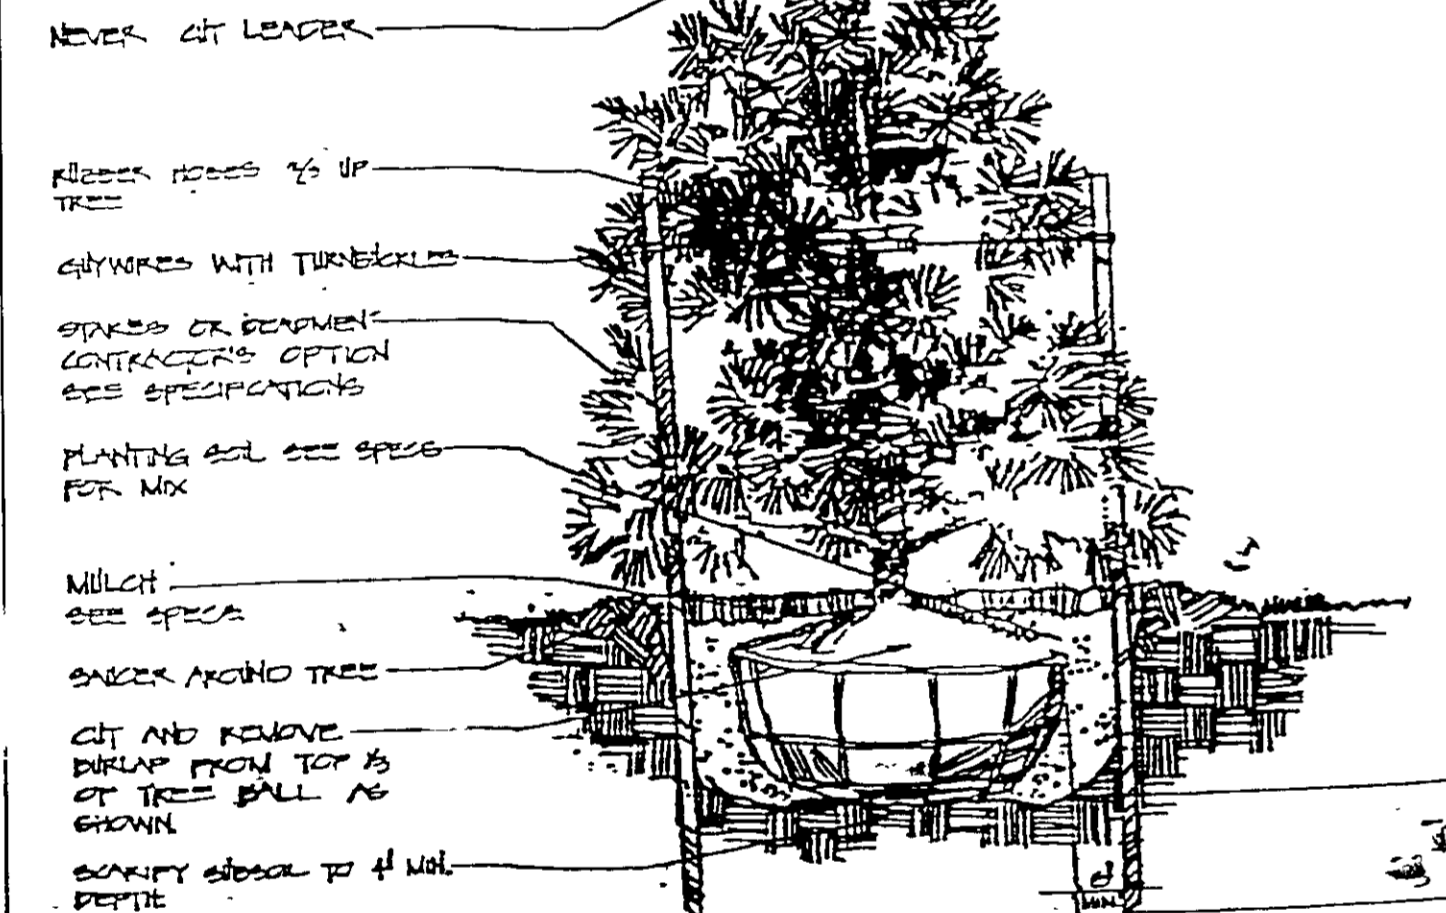 NEVER CUT LEADER
RUBBER HOSES 2/3 UP
TREE
GUYWIRES WITH TURNBUCKLES
STAKES OR DEADMEN:
CONTRACTOR'S OPTION
SEE SPECIFICATIONS
PLANTING SOIL SEE SPECS
FOR MIX
MULCH
SEE SPECS
SAUCER AROUND TREE
CUT AND REMOVE
BURLAP FROM TOP 1/3
OF TREE BALL AS
SHOWN
SCARIFY SUBSOIL TO 4" MIN.
DEPTH
MIN.